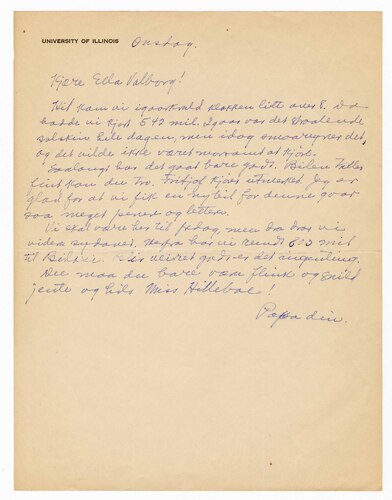 UNIVERSITY OF ILLINOIS
Onsdag.
Kjere Ella Valborg!
Hit kom vi igaarkveld klokken litt over 8. Da
hadde vi kjørt 542 mil. Igaar var det straalende
solskin hele dagen, men idag smaaregner det,
og det vilde ikke været morsomt at kjøre.
Saalangt har det gaat bare godt. Bilen
fint kan du tro. Fritjof kjører utmerket. Jeg er
glad for at vi fik en ny bil for denne gaar
saa meget penere og lettere.
Vi skal være her til fredag, men da drar vi
videre sydover. Herfra har vi rundt 600 mil
til Biloxi. Blir veiret godt er det ingenting.
Du maa du bare være flink og snild
jente og hils Miss Hilleboe!
Papa din.